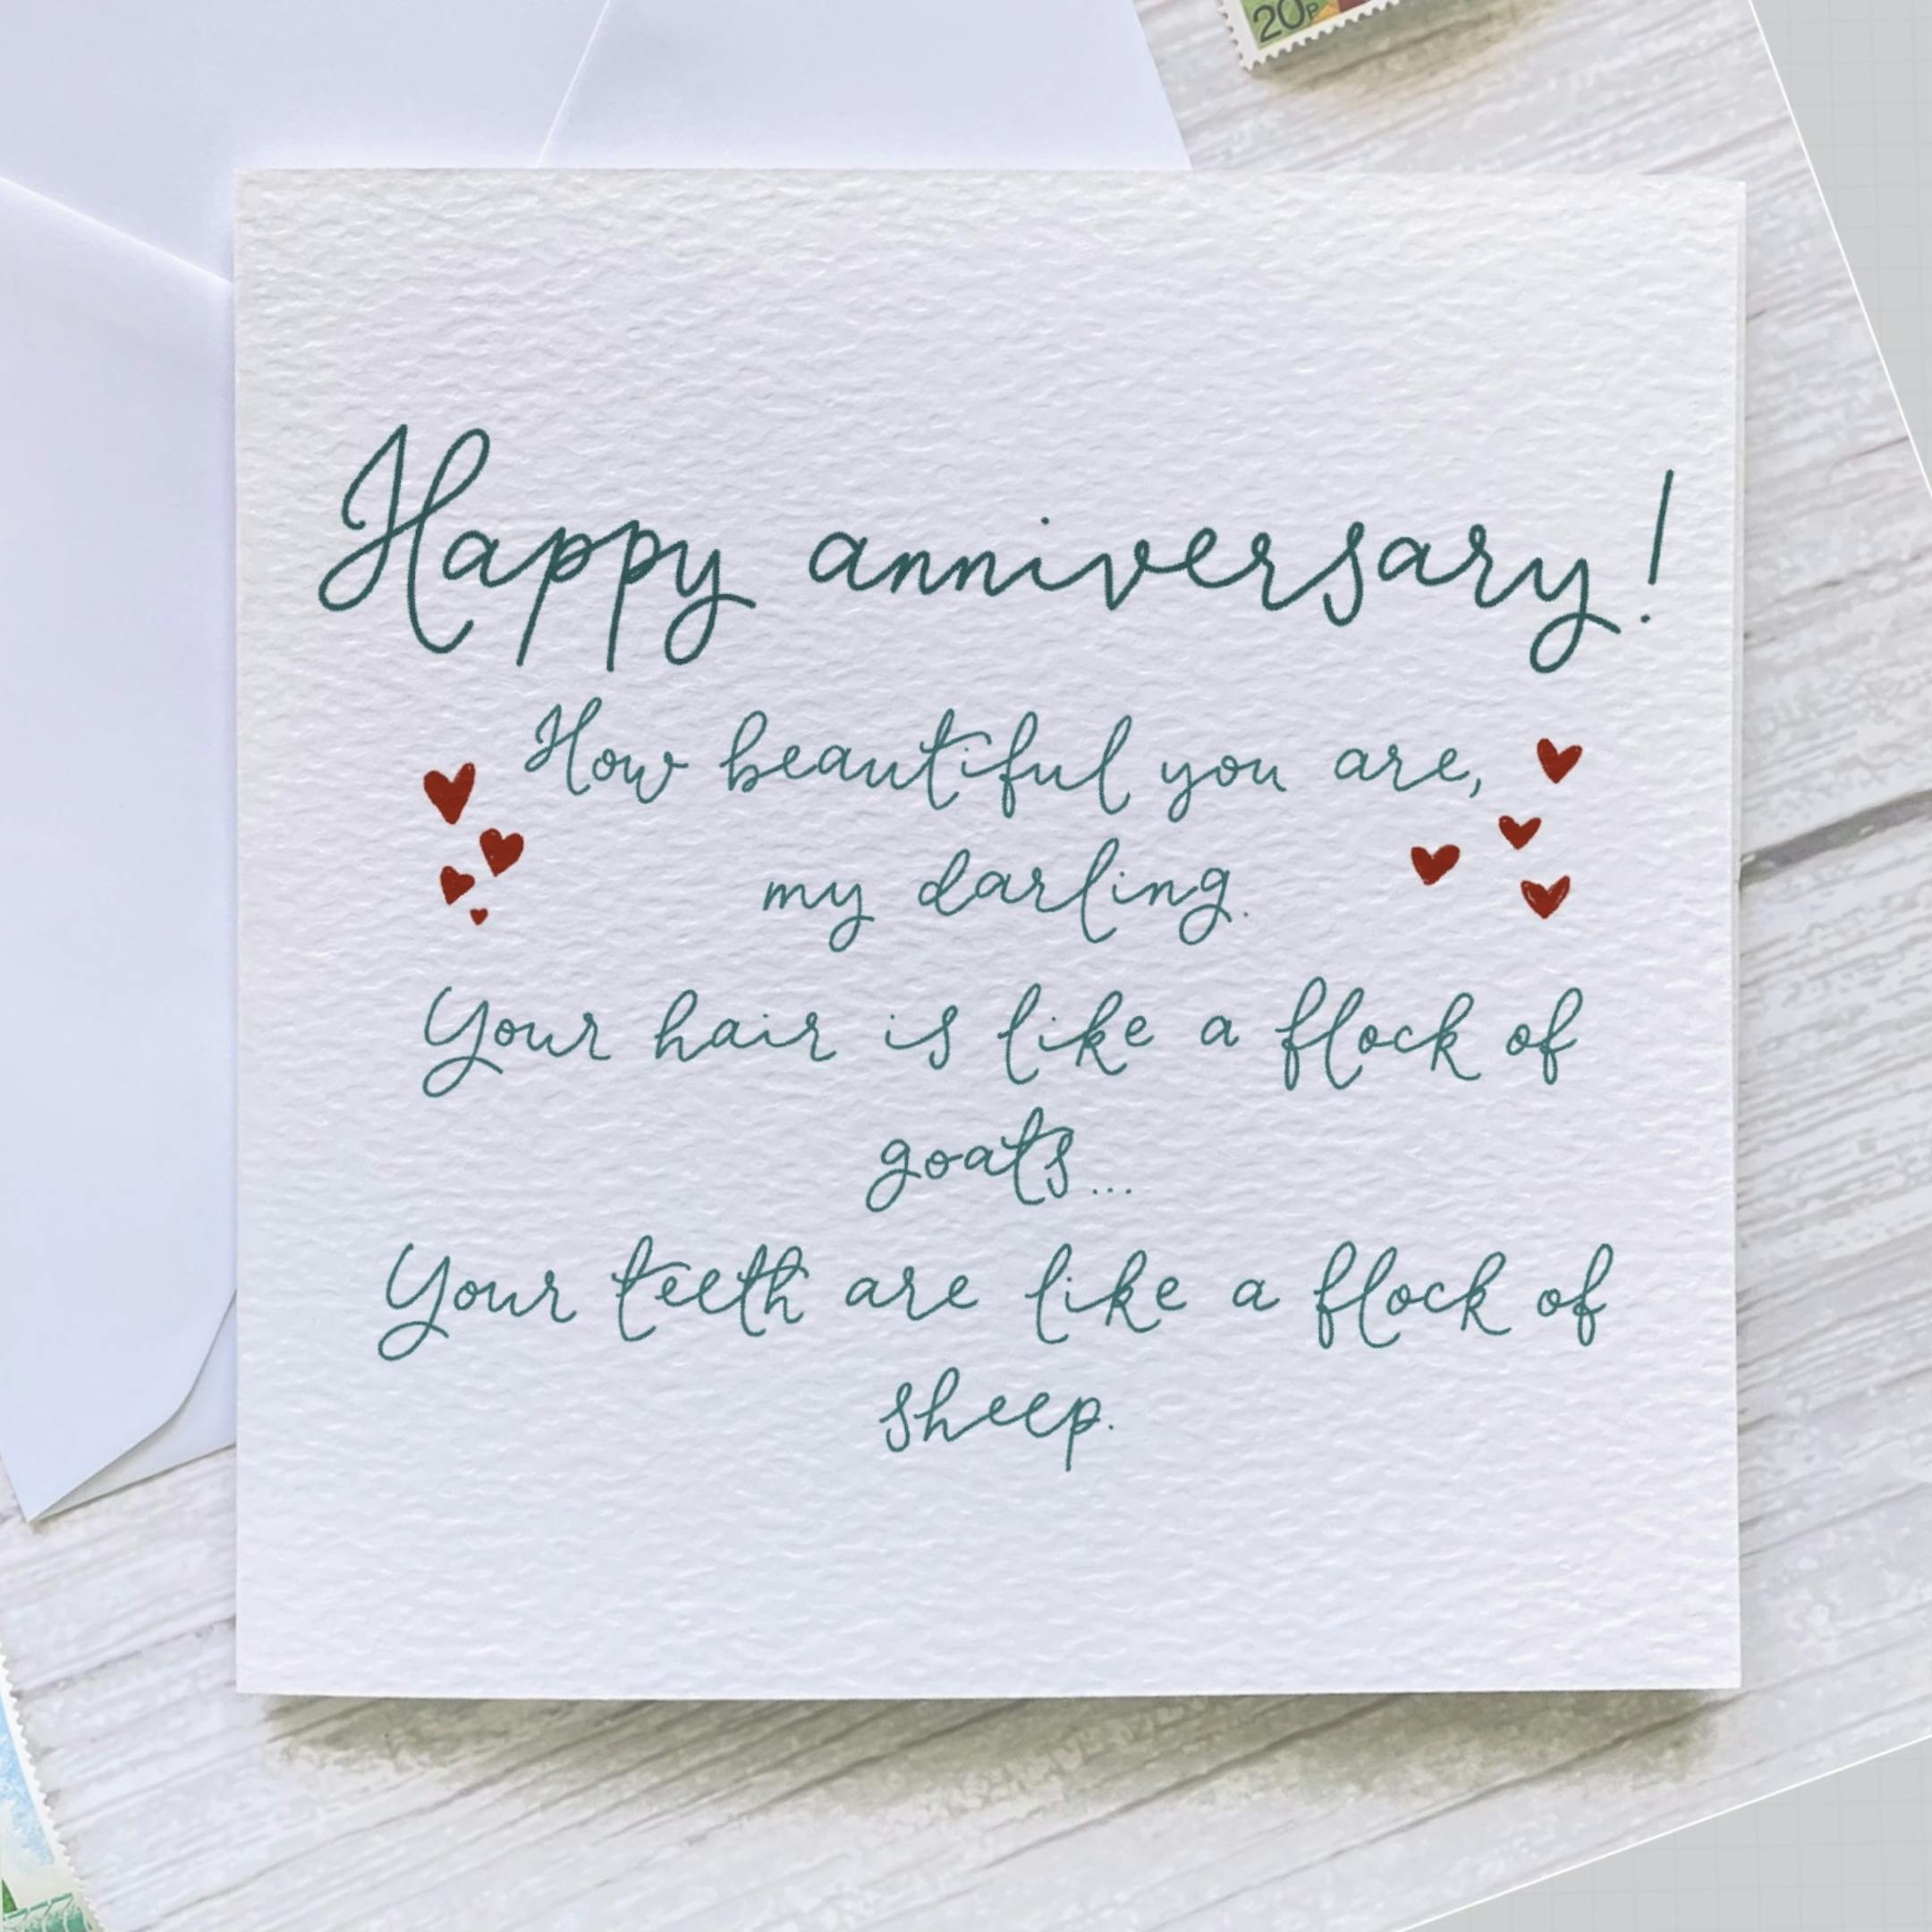 20p
Happy anniversary!
How beautiful you are,
my darling.
Your hair is like a flock of
goats...
Your teeth are like a flock of
sheep.